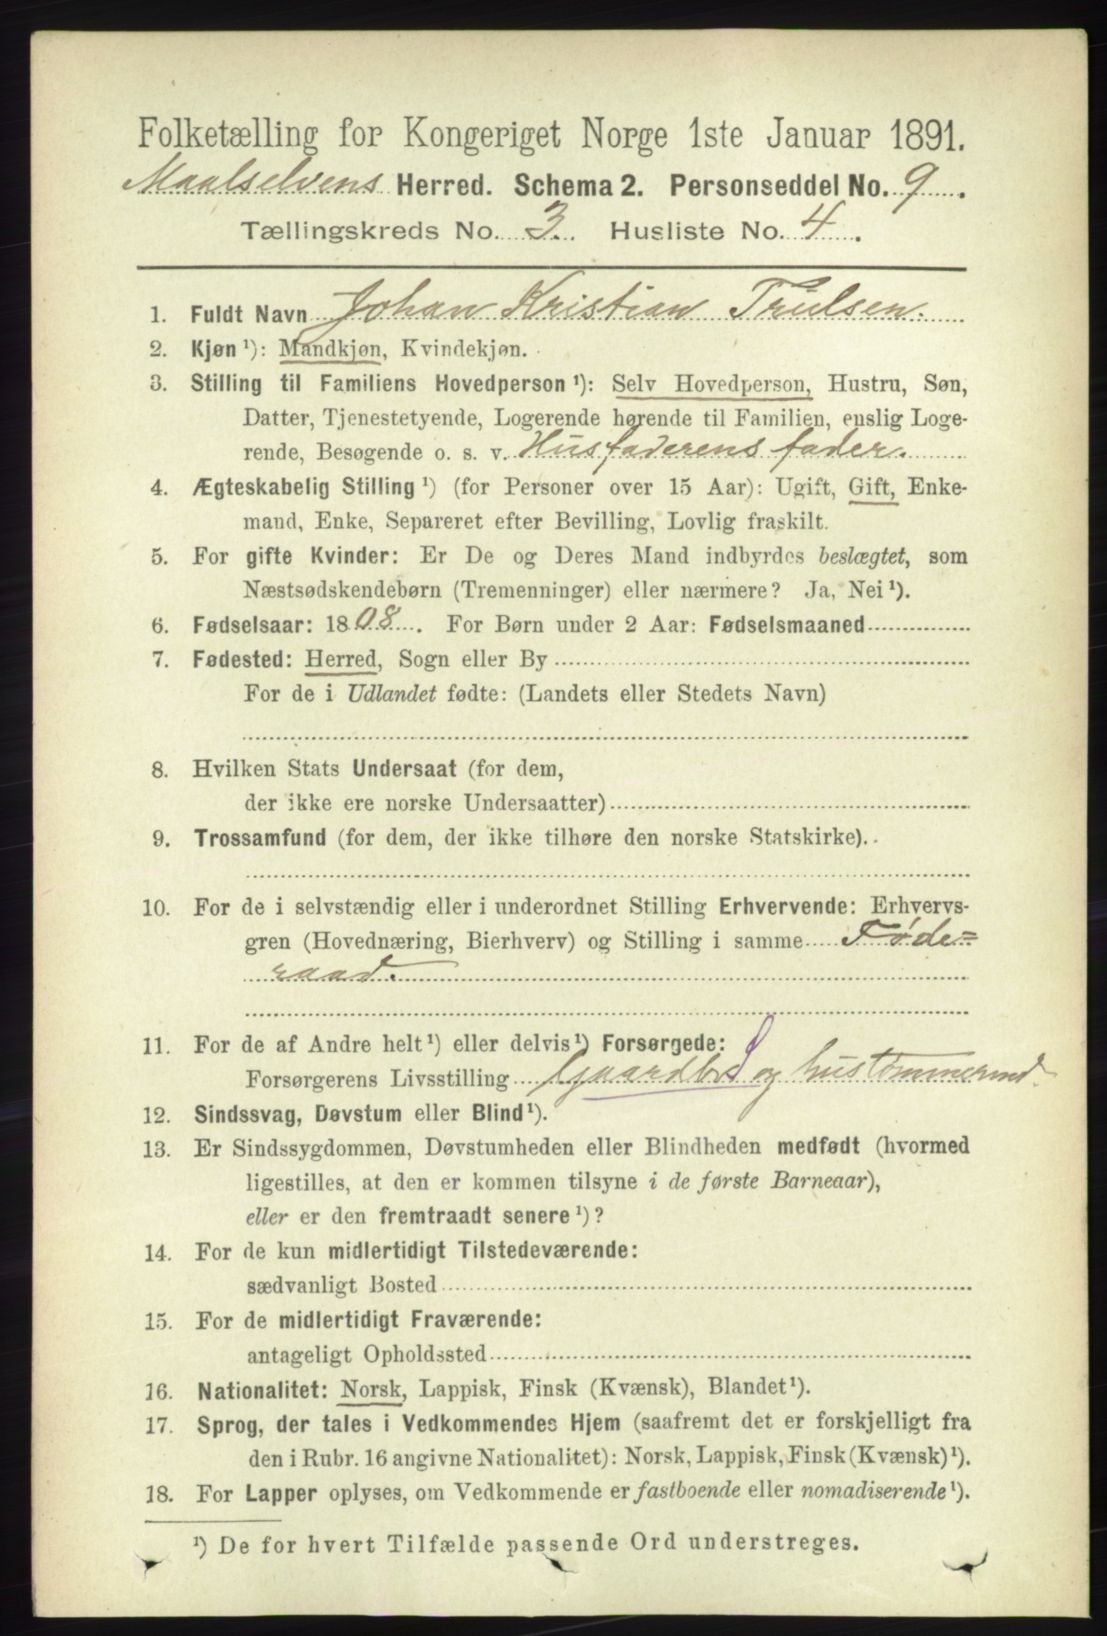 Folketælling for Kongeriget Norge 1ste Januar 1891.
Maalselvens Herred. Schema 2. Personseddel No. 9.
Tællingskreds No. 3. Husliste No. 4.
1. Fuldt Navn Johan Kristian Trulsen.
2. Kjøn ¹): Mandkjøn, Kvindekjøn.
3. Stilling til Familiens Hovedperson ¹): Selv Hovedperson, Hustru, Søn,
Datter, Tjenestetyende, Logerende hørende til Familien, enslig Loge-
rende, Besøgende o. s. v. Husfaderens fader.
4. Ægteskabelig Stilling ¹) (for Personer over 15 Aar): Ugift, Gift, Enke-
mand, Enke, Separeret efter Bevilling, Lovlig fraskilt.
5. For gifte Kvinder: Er De og Deres Mand indbyrdes beslægtet, som
Næstsødskendebørn (Tremenninger) eller nærmere? Ja, Nei ¹).
6. Fødselsaar: 1808. For Børn under 2 Aar: Fødselsmaaned
7. Fødested: Herred, Sogn eller By
For de i Udlandet fødte: (Landets eller Stedets Navn)
8. Hvilken Stats Undersaat (for dem,
der ikke ere norske Undersaatter)
9. Trossamfund (for dem, der ikke tilhøre den norske Statskirke).
10. For de i selvstændig eller i underordnet Stilling Erhvervende: Erhvervs-
gren (Hovednæring, Bierhverv) og Stilling i samme Føde=
raad.
11. For de af Andre helt ¹) eller delvis ¹) Forsørgede:
Forsørgerens Livsstilling Gaardbr. og hustømmermd.
12. Sindssvag, Døvstum eller Blind ¹).
13. Er Sindssygdommen, Døvstumheden eller Blindheden medfødt (hvormed
ligestilles, at den er kommen tilsyne i de første Barneaar),
eller er den fremtraadt senere ¹)?
14. For de kun midlertidigt Tilstedeværende:
sædvanligt Bosted
15. For de midlertidigt Fraværende:
antageligt Opholdssted
16. Nationalitet: Norsk, Lappisk, Finsk (Kvænsk), Blandet ¹).
17. Sprog, der tales i Vedkommendes Hjem (saafremt det er forskjelligt fra
den i Rubr. 16 angivne Nationalitet): Norsk, Lappisk, Finsk (Kvænsk) ¹).
18. For Lapper oplyses, om Vedkommende er fastboende eller nomadiserende ¹).
¹) De for hvert Tilfælde passende Ord understreges.